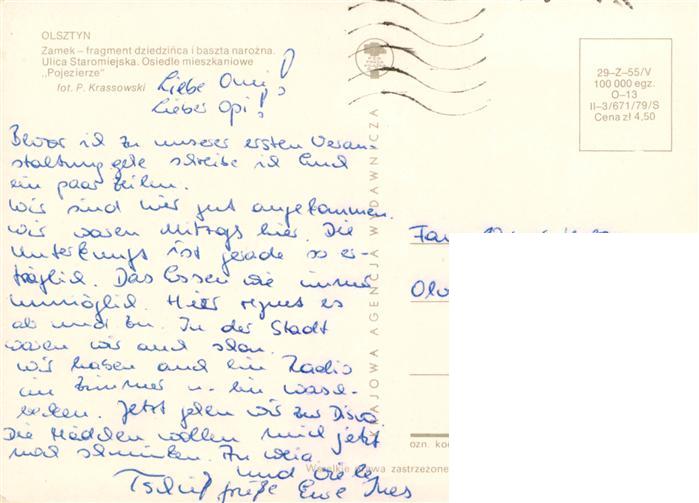 OLSZTYN
Zamek – fragment dziedzińca i baszta narożna.
Ulica Staromiejska. Osiedle mieszkaniowe
„Pojezierze"
fot. P. Krassowski
Liebe Omi!
Lieber Opi!
Bevor ich zu unserer ersten Veran-
staltung gehe schreibe ich Euch
ein paar Zeilen.
Wir sind hier gut angekommen.
Wir waren Mittags hier. Die
Unterkunft ist gerade so er-
träglich. Das Essen wie immer
unmöglich. Hier regnet es
ab und zu. In der Stadt
waren wir auch schon.
Wir haben auch ein Radio
im Zimmer u. ein Wasch-
becken. Jetzt gehen wir zur Disco.
Die Mädchen wollen mich jetzt
mal schminken.
und viele
Tschüß Grüße Eure Ines
KRAJOWA AGENCJA WYDAWNICZA
29–Z–55/V
100 000 egz.
O–13
II–3/671/79/S
Cena zł 4,50
Fam.
ozn. kod
Wszelkie prawa zastrzeżone